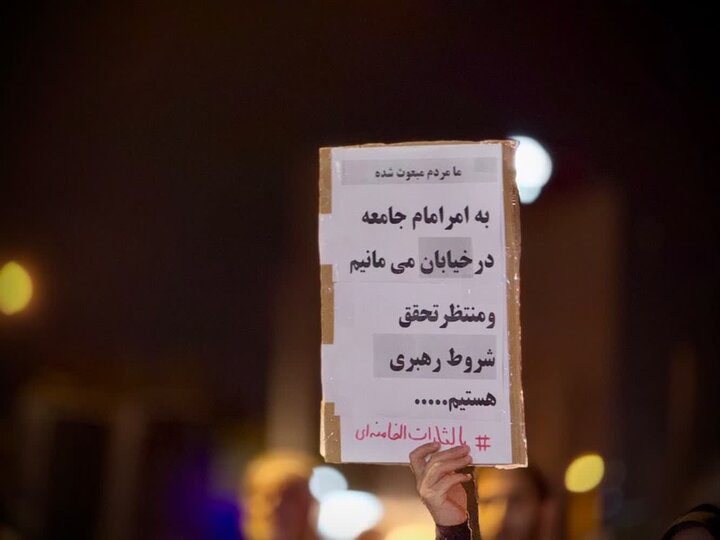 ما مردم مبعوث شده
به امر امام جامعه
در خیابان می مانیم
و منتظر تحقق
شروط رهبری
هستیم.....
# یا لثارات الخامنه‌ای